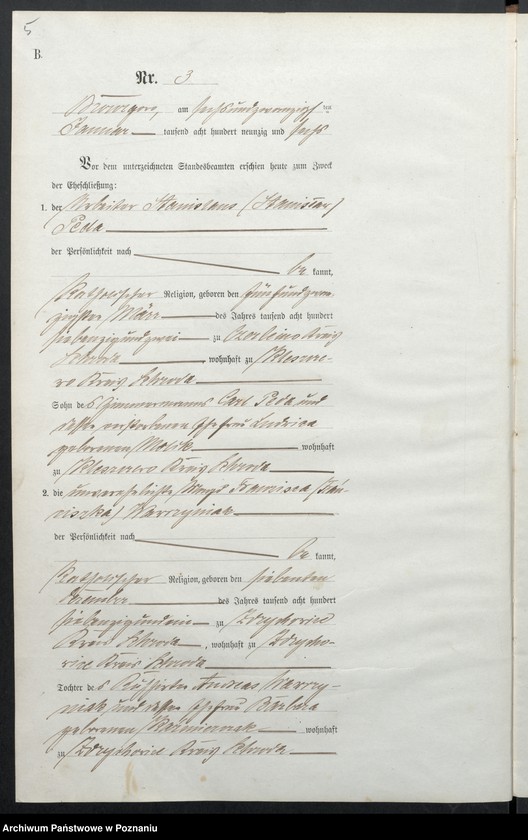 5
B.
Nr. 3
am sechsundzwanzigsten
Januar tausend acht hundert neunzig und sechs
Vor dem unterzeichneten Standesbeamten erschien heute zum Zweck
der Eheschließung:
1. der Arbeiter Stanislaus (Stanisław)
Peda
der Persönlichkeit nach
be kannt,
katholischer Religion, geboren den fünfundzwan-
zigsten März des Jahres tausend acht hundert
siebenzigundzwei zu Kreis
Schroda, wohnhaft zu Kleszcze-
wo Kreis Schroda
Sohn des Zimmermanns Carl Peda und
dessen verstorbenen Ehefrau Ludwica
geborenen wohnhaft
zu Kleszczewo Kreis Schroda
2. die unverehelichte Magd Francisca (Fran-
ciszka) Wawrzyniak
der Persönlichkeit nach
be kannt,
katholischer Religion, geboren den siebenten
des Jahres tausend acht hundert
siebenzigundein zu Zdzychovice
Kreis Schroda, wohnhaft zu Zdzycho-
vice Kreis Schroda
Tochter des Kuhhirten Andreas Wawrzy-
niak und dessen Ehefrau Barbara
geborenen wohnhaft
zu Zdzychovice Kreis Schroda
Archiwum Państwowe w Poznaniu